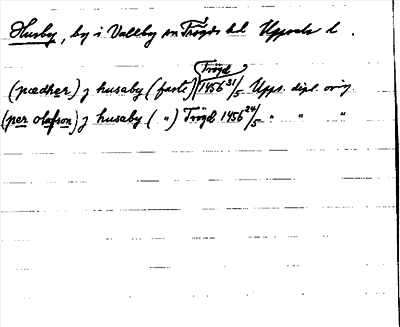 Husby, by i Vallby sn Trögds hd Uppsala l.
Trögd
(pædher) j husaby (farle) 1456 31/5 Upps. dipl. orig.
(per olafson) j husaby ( " ) Trögd 1456 24/5 " " "